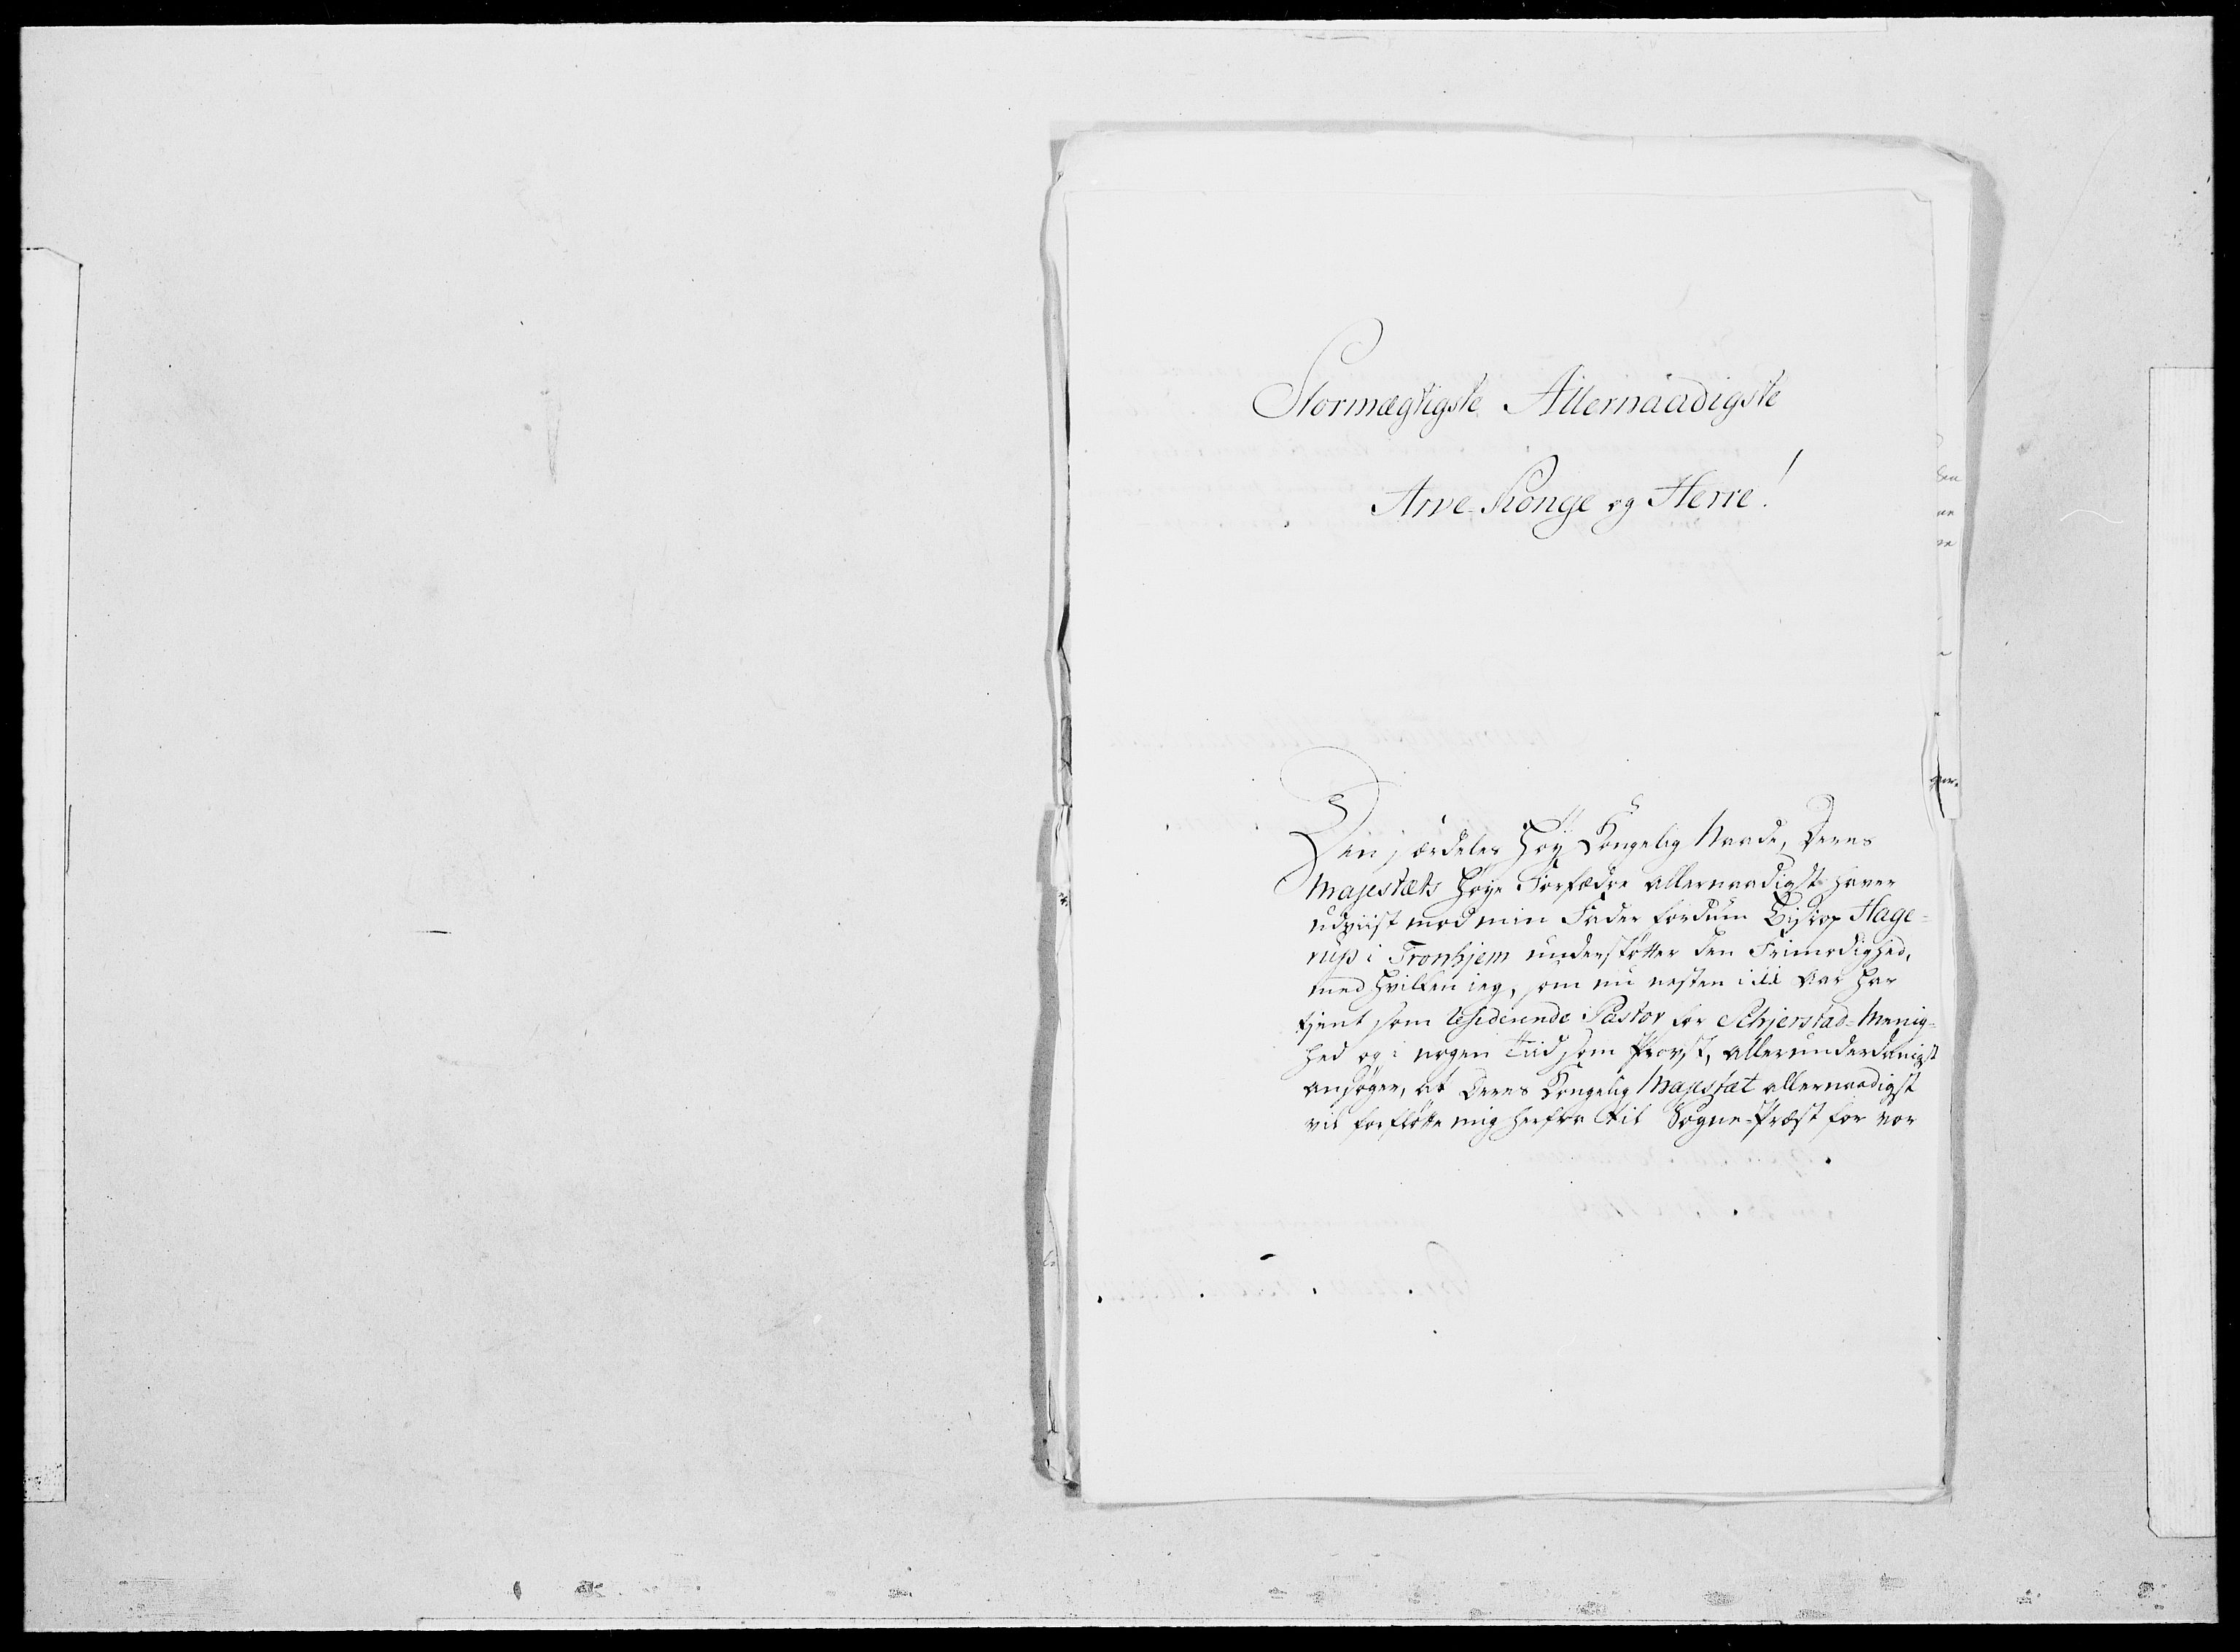 Stormægtigste Allernaadigste
Arve-Konge og Herre!
Den særdeles Høy Kongelig Naade, Deres
Majestæts høye Forfædre allernaadigst haver
udviist mod min Fader fordum Biskop Hage=
rup i Tronhjem understøtter den Frimodighed,
med hvilken ieg, som nu nesten i 11 Aar har
tjent som Residerende Pastor for Schjerstad=Menig=
hed og i nogen Tiid som Provst, allerunderdanigst
ansøger, at Deres Kongelig Majestæt allernaadigst
vil forfløtte mig herfra til Sogne-Præst for vor